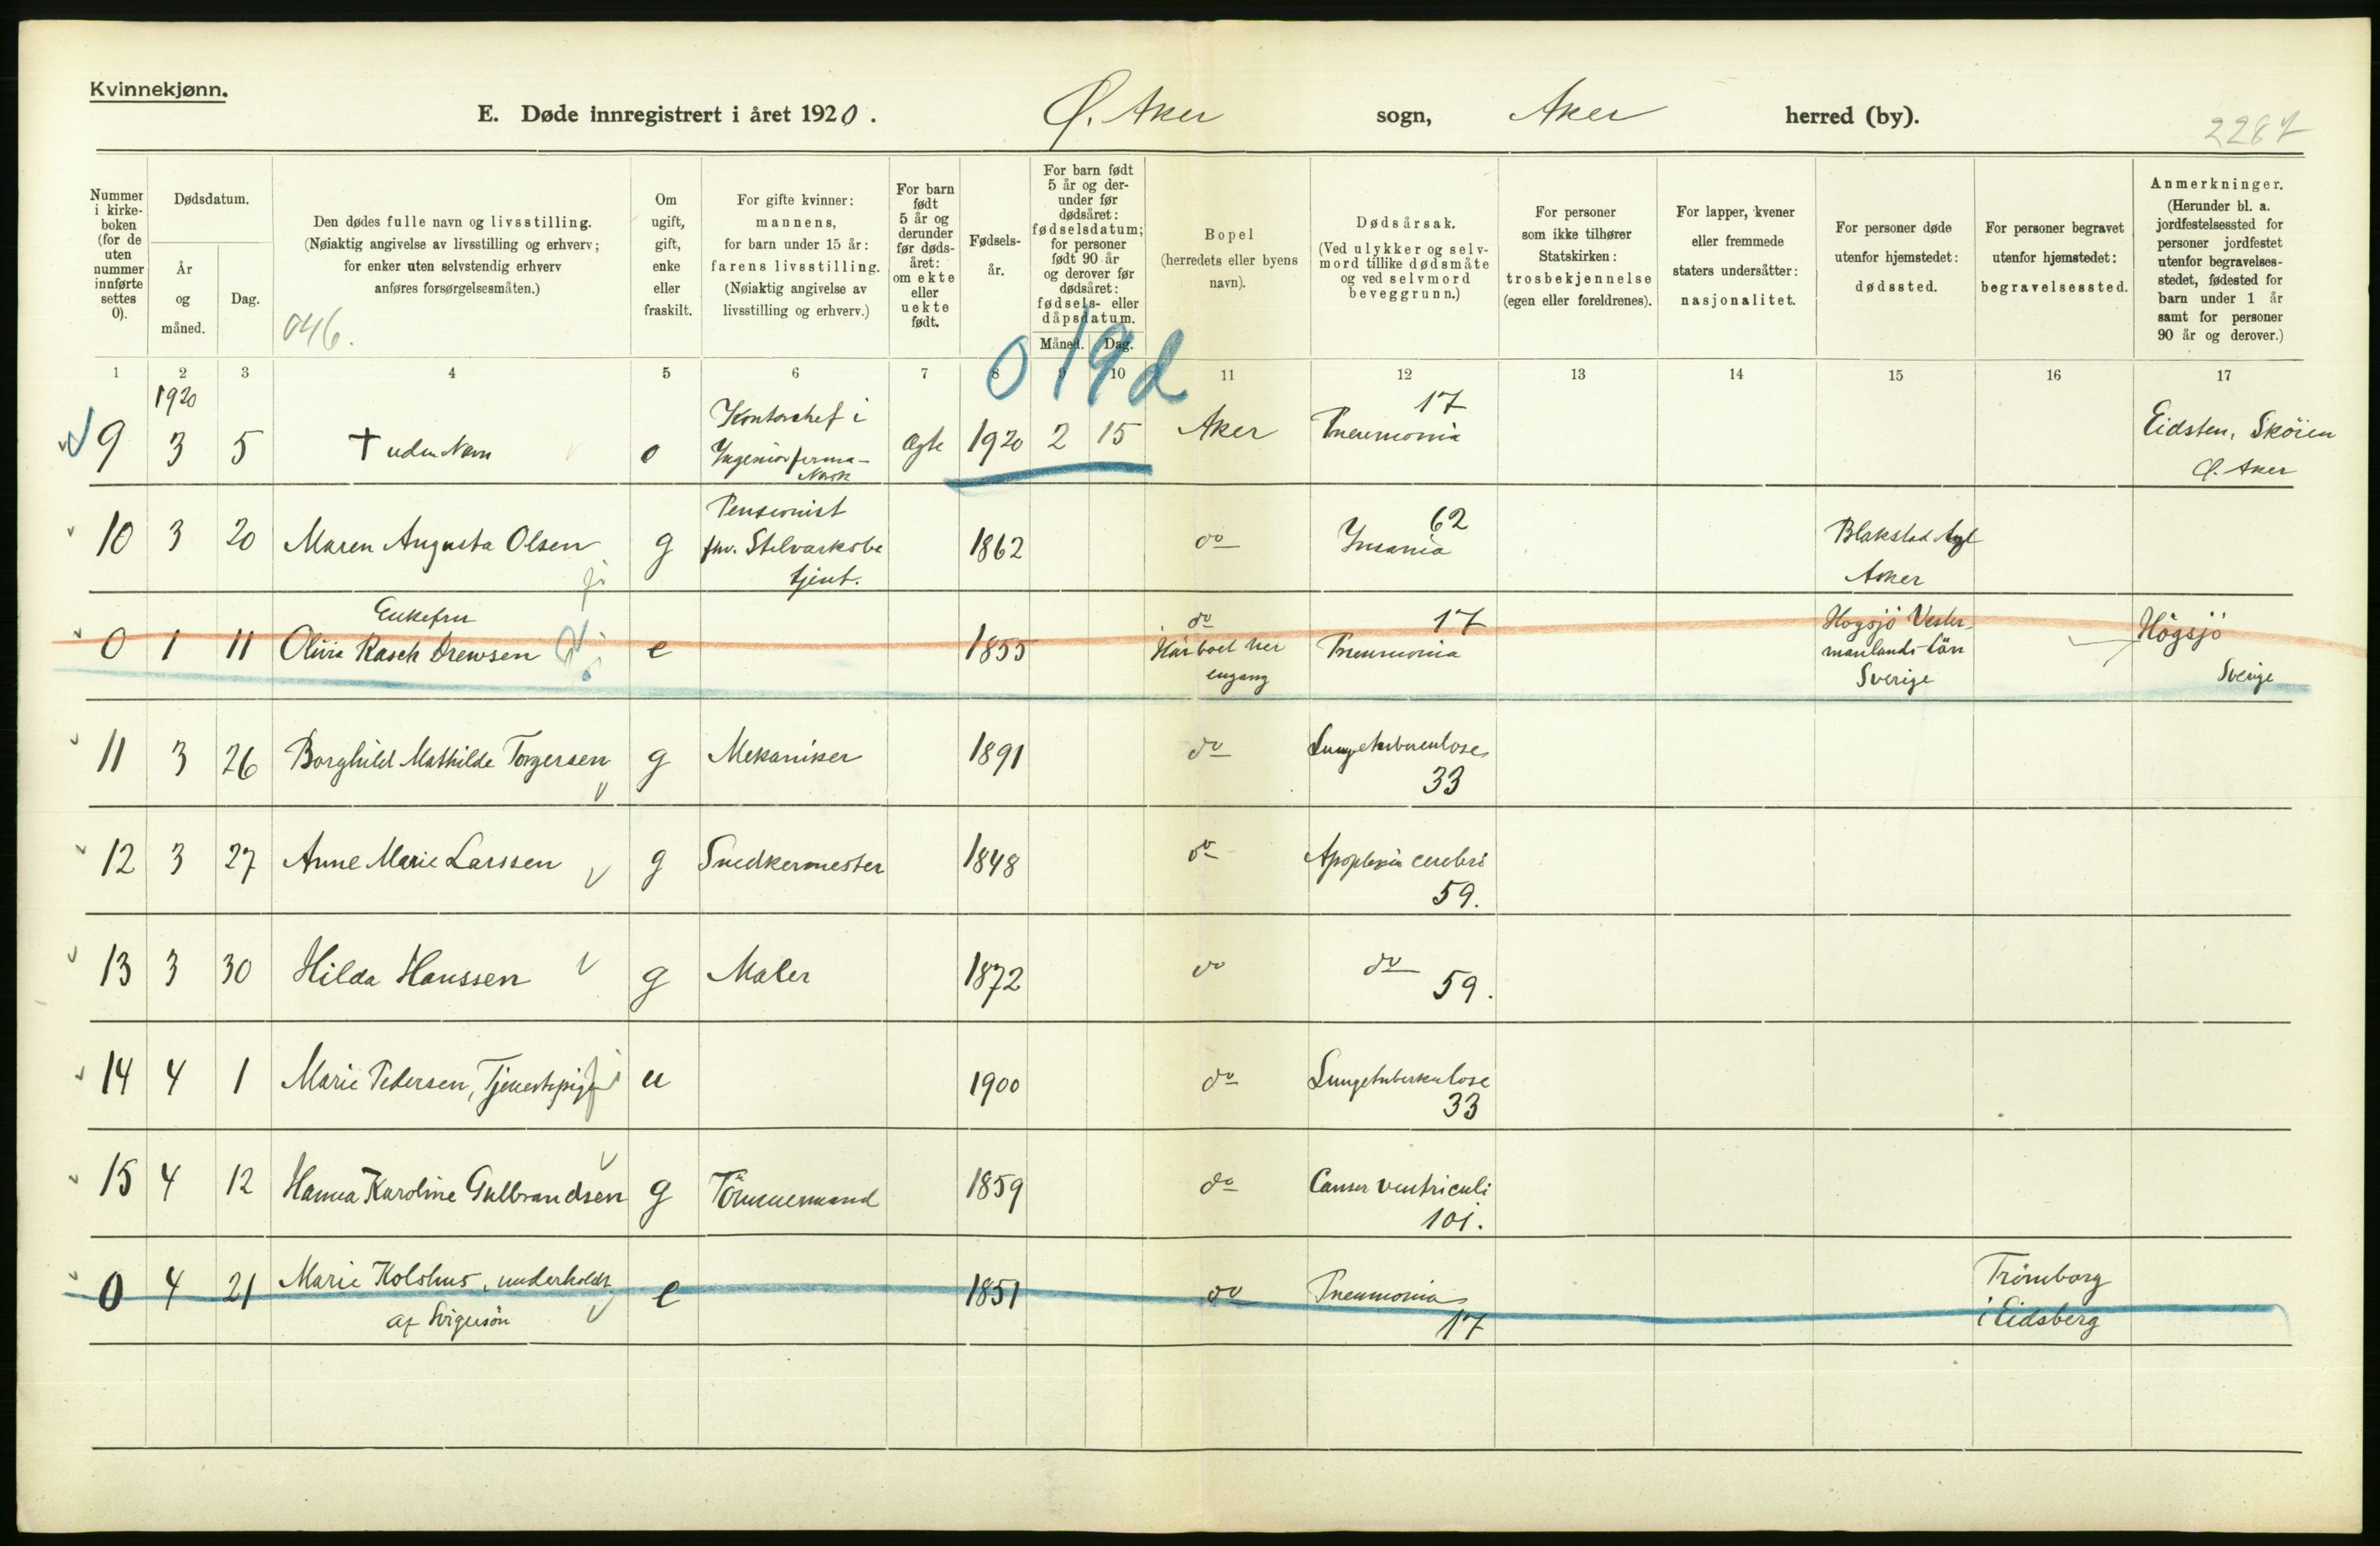 Kvinnekjønn.
E. Døde innregistrert i året 1920. Ø. Aker sogn, Aker herred (by).
2287
Nummer i kirkeboken (for de uten nummer innførte settes 0).
Dødsdatum.
År og måned.
Dag.
Den dødes fulle navn og livsstilling.
(Nøiaktig angivelse av livsstilling og erhverv;
for enker uten selvstendig erhverv
anføres forsørgelsesmåten.)
046.
Om ugift, gift, enke eller fraskilt.
For gifte kvinner:
mannens,
for barn under 15 år:
farens livsstilling.
(Nøiaktig angivelse av
livsstilling og erhverv.)
For barn født 5 år og derunder før dødsåret: om ekte eller uekte født.
Fødselsår.
For barn født 5 år og derunder før dødsåret: fødselsdatum; for personer født 90 år og derover før dødsåret: fødsels- eller dåpsdatum.
Måned. Dag.
Bopel
(herredets eller byens
navn).
Dødsårsak.
(Ved ulykker og selvmord tillike dødsmåte
og ved selvmord
beveggrunn.)
For personer
som ikke tilhører
Statskirken:
trosbekjennelse
(egen eller foreldrenes).
For lapper, kvener
eller fremmede
staters undersåtter:
nasjonalitet.
For personer døde
utenfor hjemstedet:
dødssted.
For personer begravet
utenfor hjemstedet:
begravelsessted.
Anmerkninger.
(Herunder bl. a.
jordfestelsessted for
personer jordfestet
utenfor begravelsesstedet, fødested for
barn under 1 år
samt for personer
90 år og derover.)
1 2 3 4 5 6 7 8 9 10 11 12 13 14 15 16 17
019d
1920
9 3 5 † uden Navn o Kontorchef i Ingeniørfirma- Norsk ægte 1920 2 15 Aker Pneumonia 17 Eidsten, Skøien Ø. Aker
10 3 20 Maren Augusta Olsen g Pensionist fhv. tjent. 1862 do Insania 62 Blakstad Asyl Asker
0 1 11 Enkefru Olivia Rasch Drewsen e 1855 do Har boet her engang Pneumonia 17 Högsjö Vestermanlands Län Sverige Högsjö Sverige
11 3 26 Borghild Mathilde Torgersen g Mekaniker 1891 do Lungetuberculose 33
12 3 27 Anne Marie Larssen g Snedkermester 1848 do Apoplexia cerebri 59.
13 3 30 Hilda Hanssen g Maler 1872 do do 59.
14 4 1 Marie Pedersen, Tjenestepige u 1900 do Lungetuberkulose 33
15 4 12 Hanna Karoline Gulbrandsen g Tömmermand 1859 do Canser ventriculi 101.
0 4 21 Marie Kolshus, underholdt af Svigersön e 1851 do Pneumonia 17 Trömborg i Eidsberg